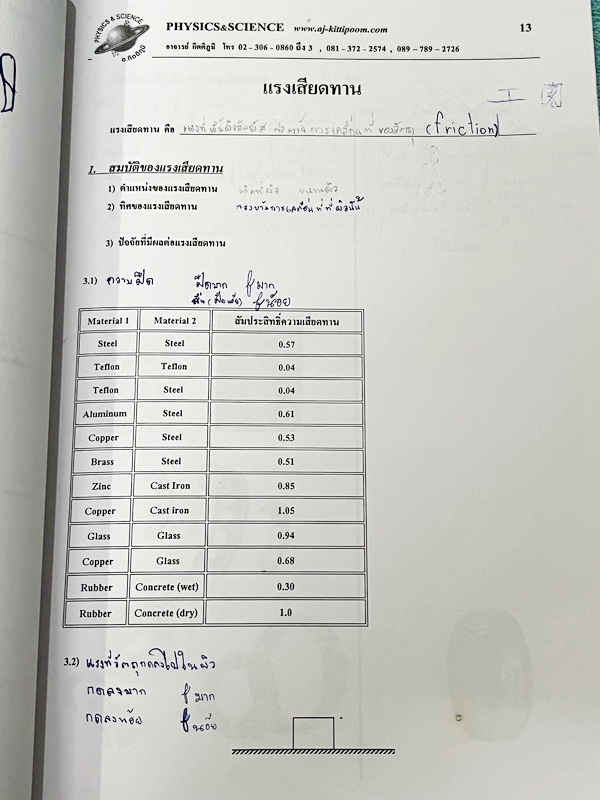 PHYSICS & SCIENCE
อ.กิตติภูมิ
PHYSICS&SCIENCE www.aj-kittipoom.com 13
อาจารย์ กิตติภูมิ โทร 02 - 306 - 0860 ถึง 3 , 081 - 372 - 2574 , 089 - 789 - 2726
แรงเสียดทาน
แรงเสียดทาน คือ การเคลื่อนที่ ของวัตถุ (friction)
1. สมบัติของแรงเสียดทาน
1) ตำแหน่งของแรงเสียดทาน
2) ทิศของแรงเสียดทาน
3) ปัจจัยที่มีผลต่อแรงเสียดทาน
3.1) ความฝืด ฝืดมาก f มาก
ลื่น (ฝืดน้อย) f น้อย
Material 1 Material 2 สัมประสิทธิ์ความเสียดทาน
Steel Steel 0.57
Teflon Teflon 0.04
Teflon Steel 0.04
Aluminum Steel 0.61
Copper Steel 0.53
Brass Steel 0.51
Zinc Cast Iron 0.85
Copper Cast iron 1.05
Glass Glass 0.94
Copper Glass 0.68
Rubber Concrete (wet) 0.30
Rubber Concrete (dry) 1.0
3.2) แรงที่วัตถุกดลงไปในผิว
กดลงมาก f มาก
กดลงน้อย f น้อย